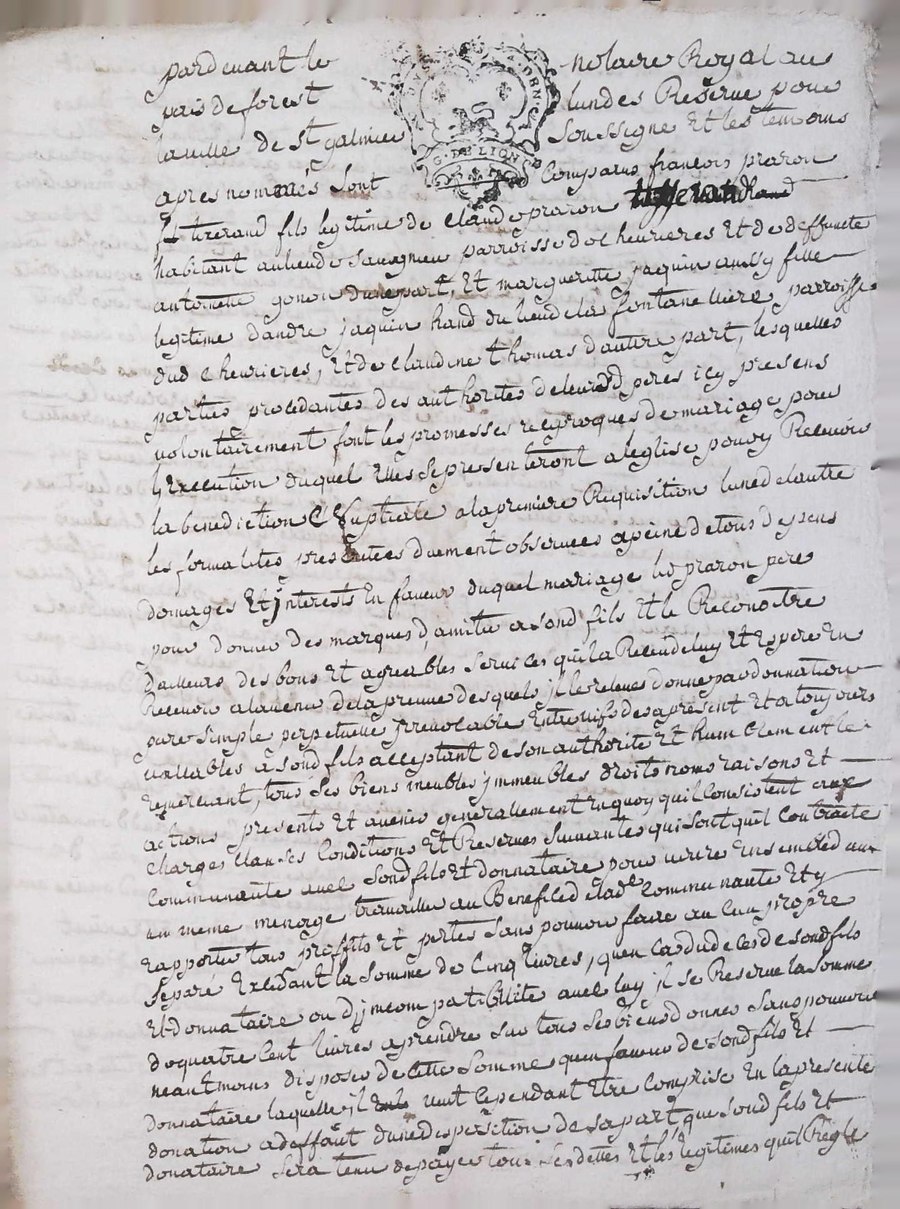 pardevant le notaire Royal au
païs de forest lun des Reservé pour
la ville de St galmier Soussigne Et les temoins
apres nommés Sont Comparus françois praron
G. DE LION
tixerand fils legitime de Claude praron
habitant au lieu de Savagneu parroisse de cheurieres Et de deffuncte
antoinette gonon dune part, Et margueritte jaquin aussy fille
legitime dandré jaquin hand du lieu de la fontanelliere parroisse
dud cheurieres, Et de Claudine thomas dautre part, lesquelles
parties procedantes des authorites de leursd peres icy presens
volontairement font les promesses reciproques de mariage pour
lExecution duquel Elles se pressenteront a leglise pour y Recevoir
la benediction Nuptiale a la premiere Requisition lune de lautre
les formalites prescrittes duement observees a peine de tous depens
domages Et jnterests En faveur duquel mariage led praron pere
pour donner des marques damitie a sond fils Et le Reconoitre
dailleurs des bons Et agreables services quil a Receu de luy Et Espere En
Recevoir a lavenir de la preuve desquels jl le releve donne par donnation
pure simple perpetuelle jrrevocable Entre vifs des apresent Et a toujours
vallables a sond fils acceptant de son authorité Et humblement le
remerciant, tous ses biens meubles jmmeubles droits noms raisons Et
actions presents Et avenir generallement En quoy quil Consistent aux
charges Clauses Conditions Et Reserves Suivantes qui sont quil Contracte
Communauté avec sond fils Et donnataire pour vivre Ensemble
un meme menage travailler au Benefice de lade Communauté Et y
rapporter tous proffits Et pertes sans pouvoir faire aucun propre
Separé Excedant la somme de Cinq livres, quen cas du deces de sond fils
Et donnataire ou djmcompatibilité avec luy jl se Reserve la somme
de quatre Cent livres a prendre sur tous ses biens donnes sans pouvoir
neantmoins disposer de Cette somme quen faveur de sond fils Et
donnataire laquelle jl veut Cependant Etre Comprise En la presente
donation a deffaut dune disposition de sa part que sond fils Et
donataire sera tenu de payer tous ses dettes Et les legitimes quil Regle